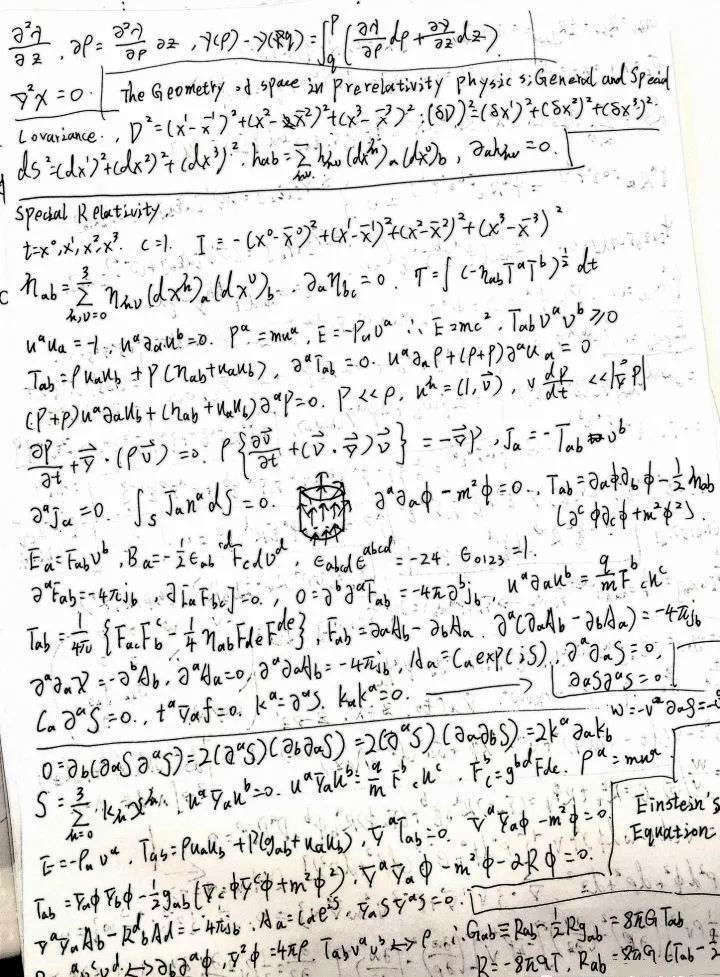 ∂²λ/∂z , ∂ρ = ∂²λ/∂ρ ∂z , γ(ρ) - γ(q) = ∫_q^p (∂λ/∂ρ dρ + ∂γ/∂z dz)
∇²X = 0. The Geometry of space in Prerelativity physics; General and Special
Covariance. , D² = (x¹ - x̄¹)² + (x² - x̄²)² + (x³ - x̄³)² ; (δD)² = (δx¹)² + (δx²)² + (δx³)².
ds² = (dx¹)² + (dx²)² + (dx³)². hab = Σ_{μν} hμν (dx^μ)a (dx^ν)b , ∂a hbν = 0.
Special Relativity.
t = x⁰, x¹, x², x³. c = 1. I = -(x⁰ - x̄⁰)² + (x¹ - x̄¹)² + (x² - x̄²)² + (x³ - x̄³)²
ηab = Σ_{μ,ν=0}^3 ημν (dx^μ)a (dx^ν)b . ∂a ηbc = 0. τ = ∫ (-ηab T^a T^b)^{1/2} dt
u^a ua = -1, u^a ∂a u^b = 0. P^a = mu^a, E = -Pa v^a ∴ E = mc², Tab v^a v^b ≥ 0
Tab = ρ ua ub + P(ηab + ua ub), ∂^a Tab = 0. u^a ∂a ρ + (ρ+p) ∂^a ua = 0
(P+ρ) u^a ∂a ub + (ηab + ua ub) ∂^a P = 0. P << ρ, u^μ = (1, v⃗), v dp/dt << |∇⃗P|
∂ρ/∂t + ∇⃗·(ρv⃗) = 0. ρ{∂v⃗/∂t + (v⃗·∇⃗)v⃗} = -∇⃗P, Ja = -Tab v^b
∂^a Ja = 0. ∫_S Ja n^a dS = 0. ∂^a ∂a φ - m²φ = 0., Tab = ∂aφ ∂bφ - ½ ηab
(∂^cφ ∂cφ + m²φ²).
Ea = Fab v^b, Ba = -½ εab^{cd} Fcd v^b, εabcd ε^{abcd} = -24. ε0123 = 1.
∂^a Fab = -4πjb, ∂[a Fbc] = 0., 0 = ∂^b ∂^a Fab = -4π ∂^b jb, u^a ∂a u^b = q/m F^b_c u^c
Tab = 1/4π {Fac Fb^c - ¼ ηab Fde F^{de}}, Fab = ∂a Ab - ∂b Aa. ∂^a(∂a Ab - ∂b Aa) = -4πjb
∂^a ∂a X = -∂^b Ab, ∂^a Aa = 0, ∂^a ∂a Ab = -4πjb, Aa = Ca exp(iS), ∂^a ∂a S = 0,
∂aS ∂^aS = 0.
Ca ∂^a S = 0., t^a ∇a f = 0. k^a = ∂^a S. ka k^a = 0. →
w = -v^a ∂a S = -
0 = ∂b(∂aS ∂^aS) = 2(∂^aS)(∂b ∂aS) = 2(∂^aS)(∂a ∂bS) = 2k^a ∂a kb
S = Σ_{μ=0}^3 kμ x^μ. u^a ∇a u^b = 0. u^a ∇a u^b = q/m F^b_c u^c. F^b_c = g^{bd} Fdc. P^a = mu^a
E = -Pa v^a, Tab = ρ ua ub + P(gab + ua ub), ∇^a Tab = 0. ∇^a ∇a φ - m²φ = 0
Einstein's
Equation
Tab = ∇aφ ∇bφ - ½ gab (∇cφ ∇^cφ + m²φ²). ∇^a ∇a φ - m²φ - αRφ = 0.
∇^a ∇a Ab - R^d_b Ad = -4πjb. Aa = Ca e^{iS}. ∇aS ∇^aS = 0.
↔ ∂b ∂^a φ. ∇²φ = 4πρ. Tab v^a v^b ↔ ρ. ∴ Gab ≡ Rab - ½ R gab = 8πG Tab
-R = -8πGT Rab = 8πG (Tab - ½